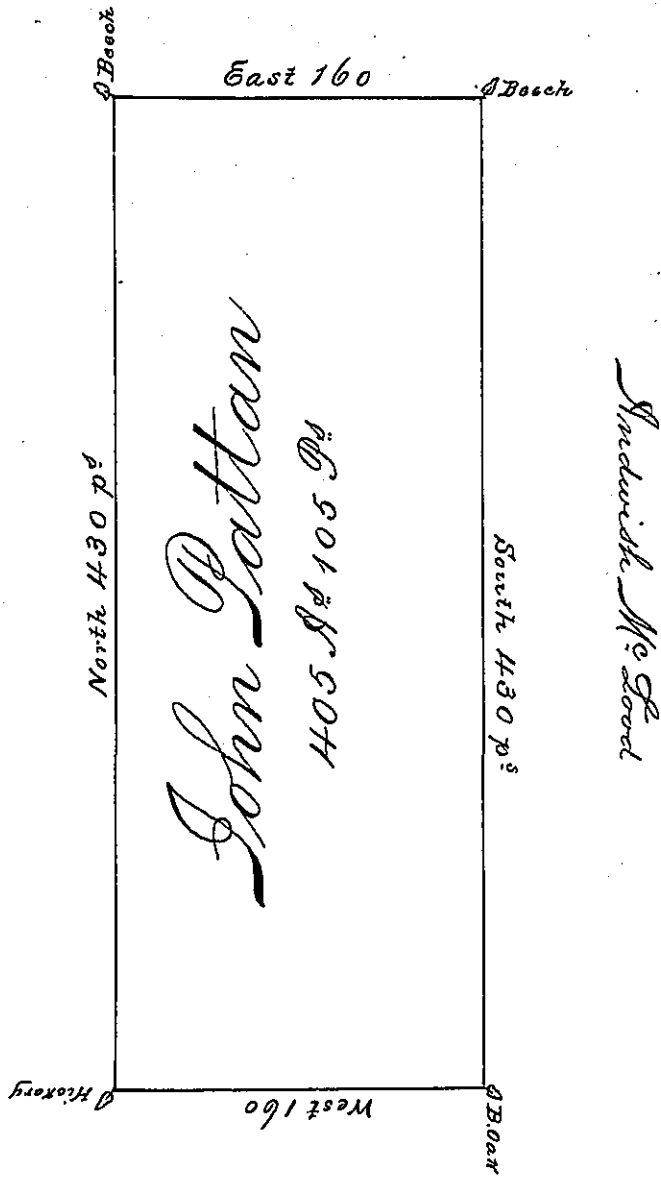 Beech
East 160
Beech
North 430 pˢ
John Pattan
405 Aˢ 105 Pˢ
South 430 pˢ
Andwish Mᶜ Lood
Hickory
West 160
B.Oak